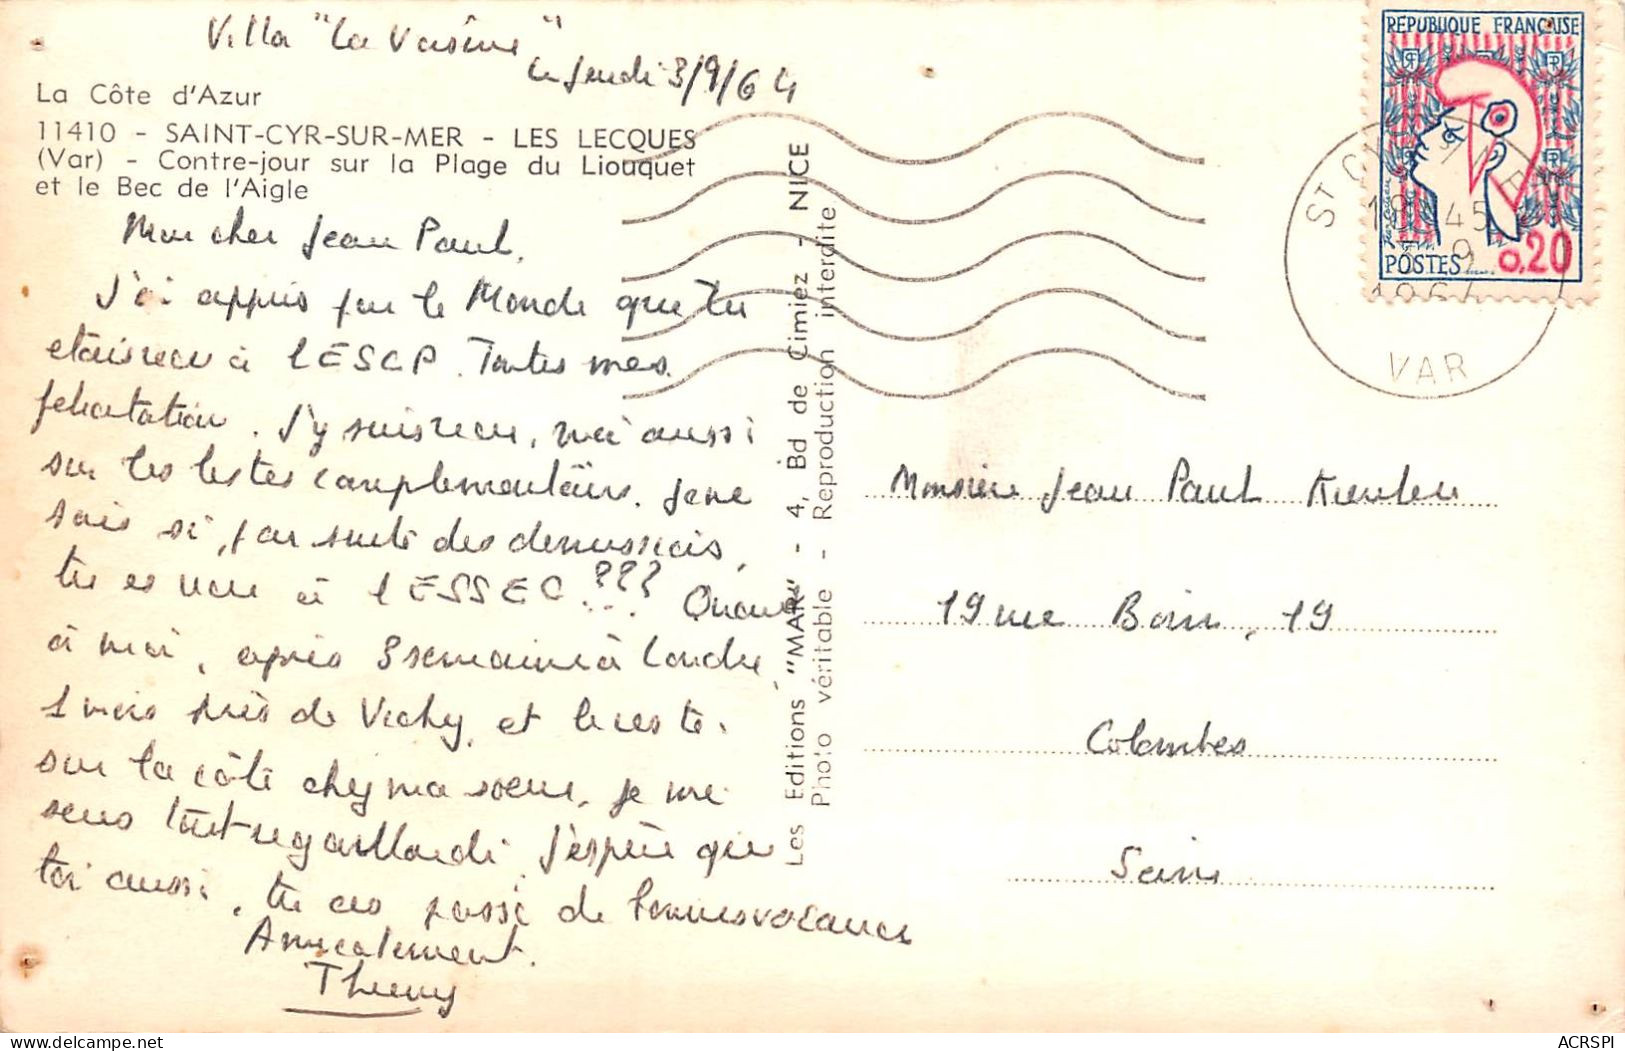 Villa "La
le jeudi 3/9/64
La Côte d'Azur
11410 - SAINT-CYR-SUR-MER - LES LECQUES
(Var) - Contre-jour sur la Plage du Liouquet
et le Bec de l'Aigle
Mon cher Jean Paul,
J'ai appris par le Monde que tu
etais recu à l ESCP. Toutes mes
felicitation. J'y suis recu, moi aussi
sur les listes complementaires. Je ne
sais si, par suite des demissions,
tu es recu à l ESSEC ???... Quant
à moi, après 3 semaines à Londre,
1 mois près de Vichy, et le reste
sur la côte chez ma soeur, je me
sens tout regaillardi. J'espère que
toi aussi, tu as passé de bonnes vacances
Amicalement.
Thierry
Les Editions "MAR" - 4, Bd de Cimiez - NICE
Photo véritable - Reproduction interdite
REPUBLIQUE FRANÇAISE
POSTES 0,20
ST CYR S/MER
18 45
3 - 9
1964
VAR
Monsieur Jean Paul
19 rue 19
Colombes
Seine
delcampe.net
ACRSPI